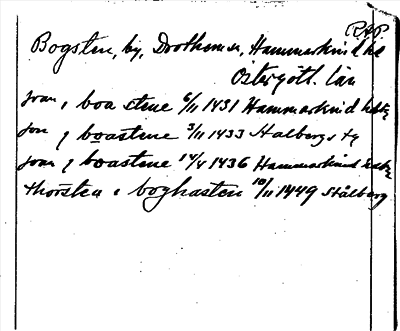 RAP.
Bogsten, by, Drothems, Hammarkind hd
Östergötl. län
joan i boa stene 6/11 1431 Hammarkind hdtg
jon i boastene 3/11 1433 Stalbergs tg
joan i boastene 14/5 1436 Hammarkind hdtg
thorsten i boghasten 10/11 1449 Stålberg